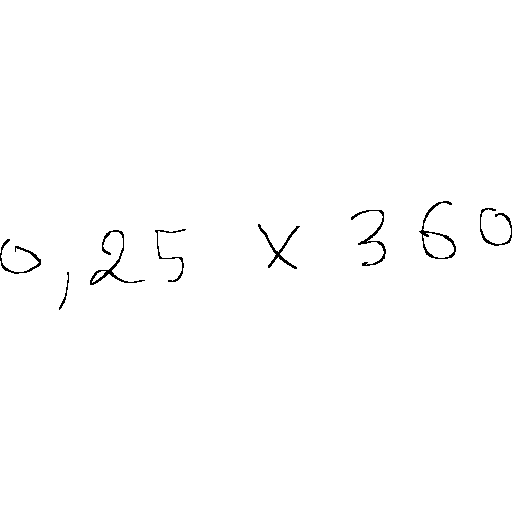 0,25 x 360